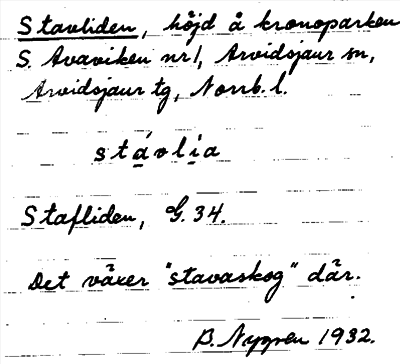 Stavliden, höjd å kronoparken
S. Avaviken nr 1, Arvidsjaur sn,
Arvidsjaur tg, Norrb. l.
stávlia
Stafliden, G. 34.
Det växer "stavaskog" där.
B. Nygren 1932.